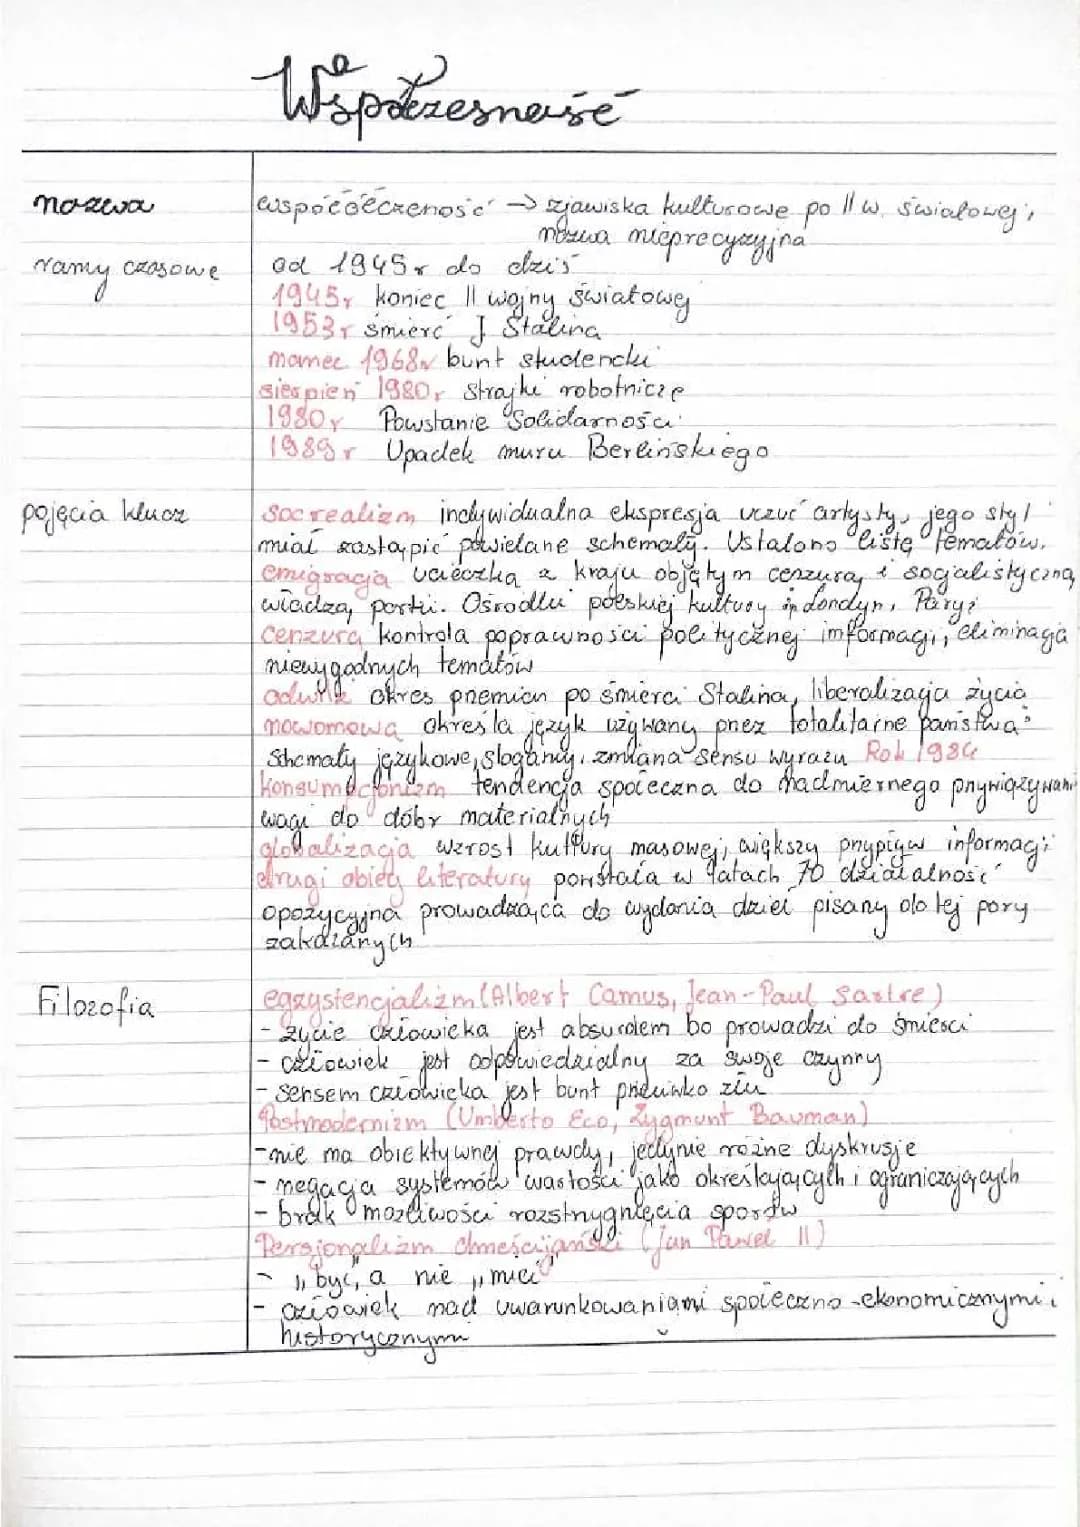 Współczesność
nazwa
współczesność → zjawiska kulturowe po II w. światowej,
nazwa nieprecyzyjna
ramy czasowe
od 1945r do dziś
1945r koniec II wojny światowej
1953r śmierć J Stalina
marzec 1968r bunt studencki
sierpień 1980r strajki robotnicze
1980r Powstanie Solidarności
1989r Upadek muru Berlińskiego
pojęcia klucz
socrealizm indywidualna ekspresja uczuć artysty, jego styl
miał zastąpić powielane schematy. Ustalono listę tematów.
emigracja ucieczka z kraju objętym cenzurą i socjalistyczną
władzą partii. Ośrodki polskiej kultury Londyn, Paryż
Cenzura kontrola poprawności politycznej informacji, eliminacja
niewygodnych tematów
odwilż okres przemian po śmierci Stalina, liberalizacja życia
nowomowa określa język używany przez totalitarne państwa
Schematy językowe, slogany, zmiana sensu wyrazu Rok 1984
konsumpcjonizm tendencja społeczna do nadmiernego przywiązywani
wagi do dóbr materialnych
globalizacja wzrost kultury masowej, większy przypływ informacji
drugi obieg literatury powstała w latach 70 działalność
opozycyjna prowadząca do wydania dzieł pisany do tej pory
zakazanych
Filozofia
egzystencjalizm (Albert Camus, Jean-Paul Sartre)
- życie człowieka jest absurdem bo prowadzi do śmierci
- człowiek jest odpowiedzialny za swoje czynny
- sensem człowieka jest bunt przeciwko złu
Postmodernizm (Umberto Eco, Zygmunt Bauman)
- nie ma obiektywnej prawdy, jedynie różne dyskrusje
- negacja systemów wartości jako określających i ograniczających
- brak możliwości rozstrzygnięcia sporów
Personalizm chrześcijański (Jan Paweł II)
- "być, a nie "mieć"
- człowiek nad uwarunkowaniami społeczno-ekonomicznymi i
historycznymi